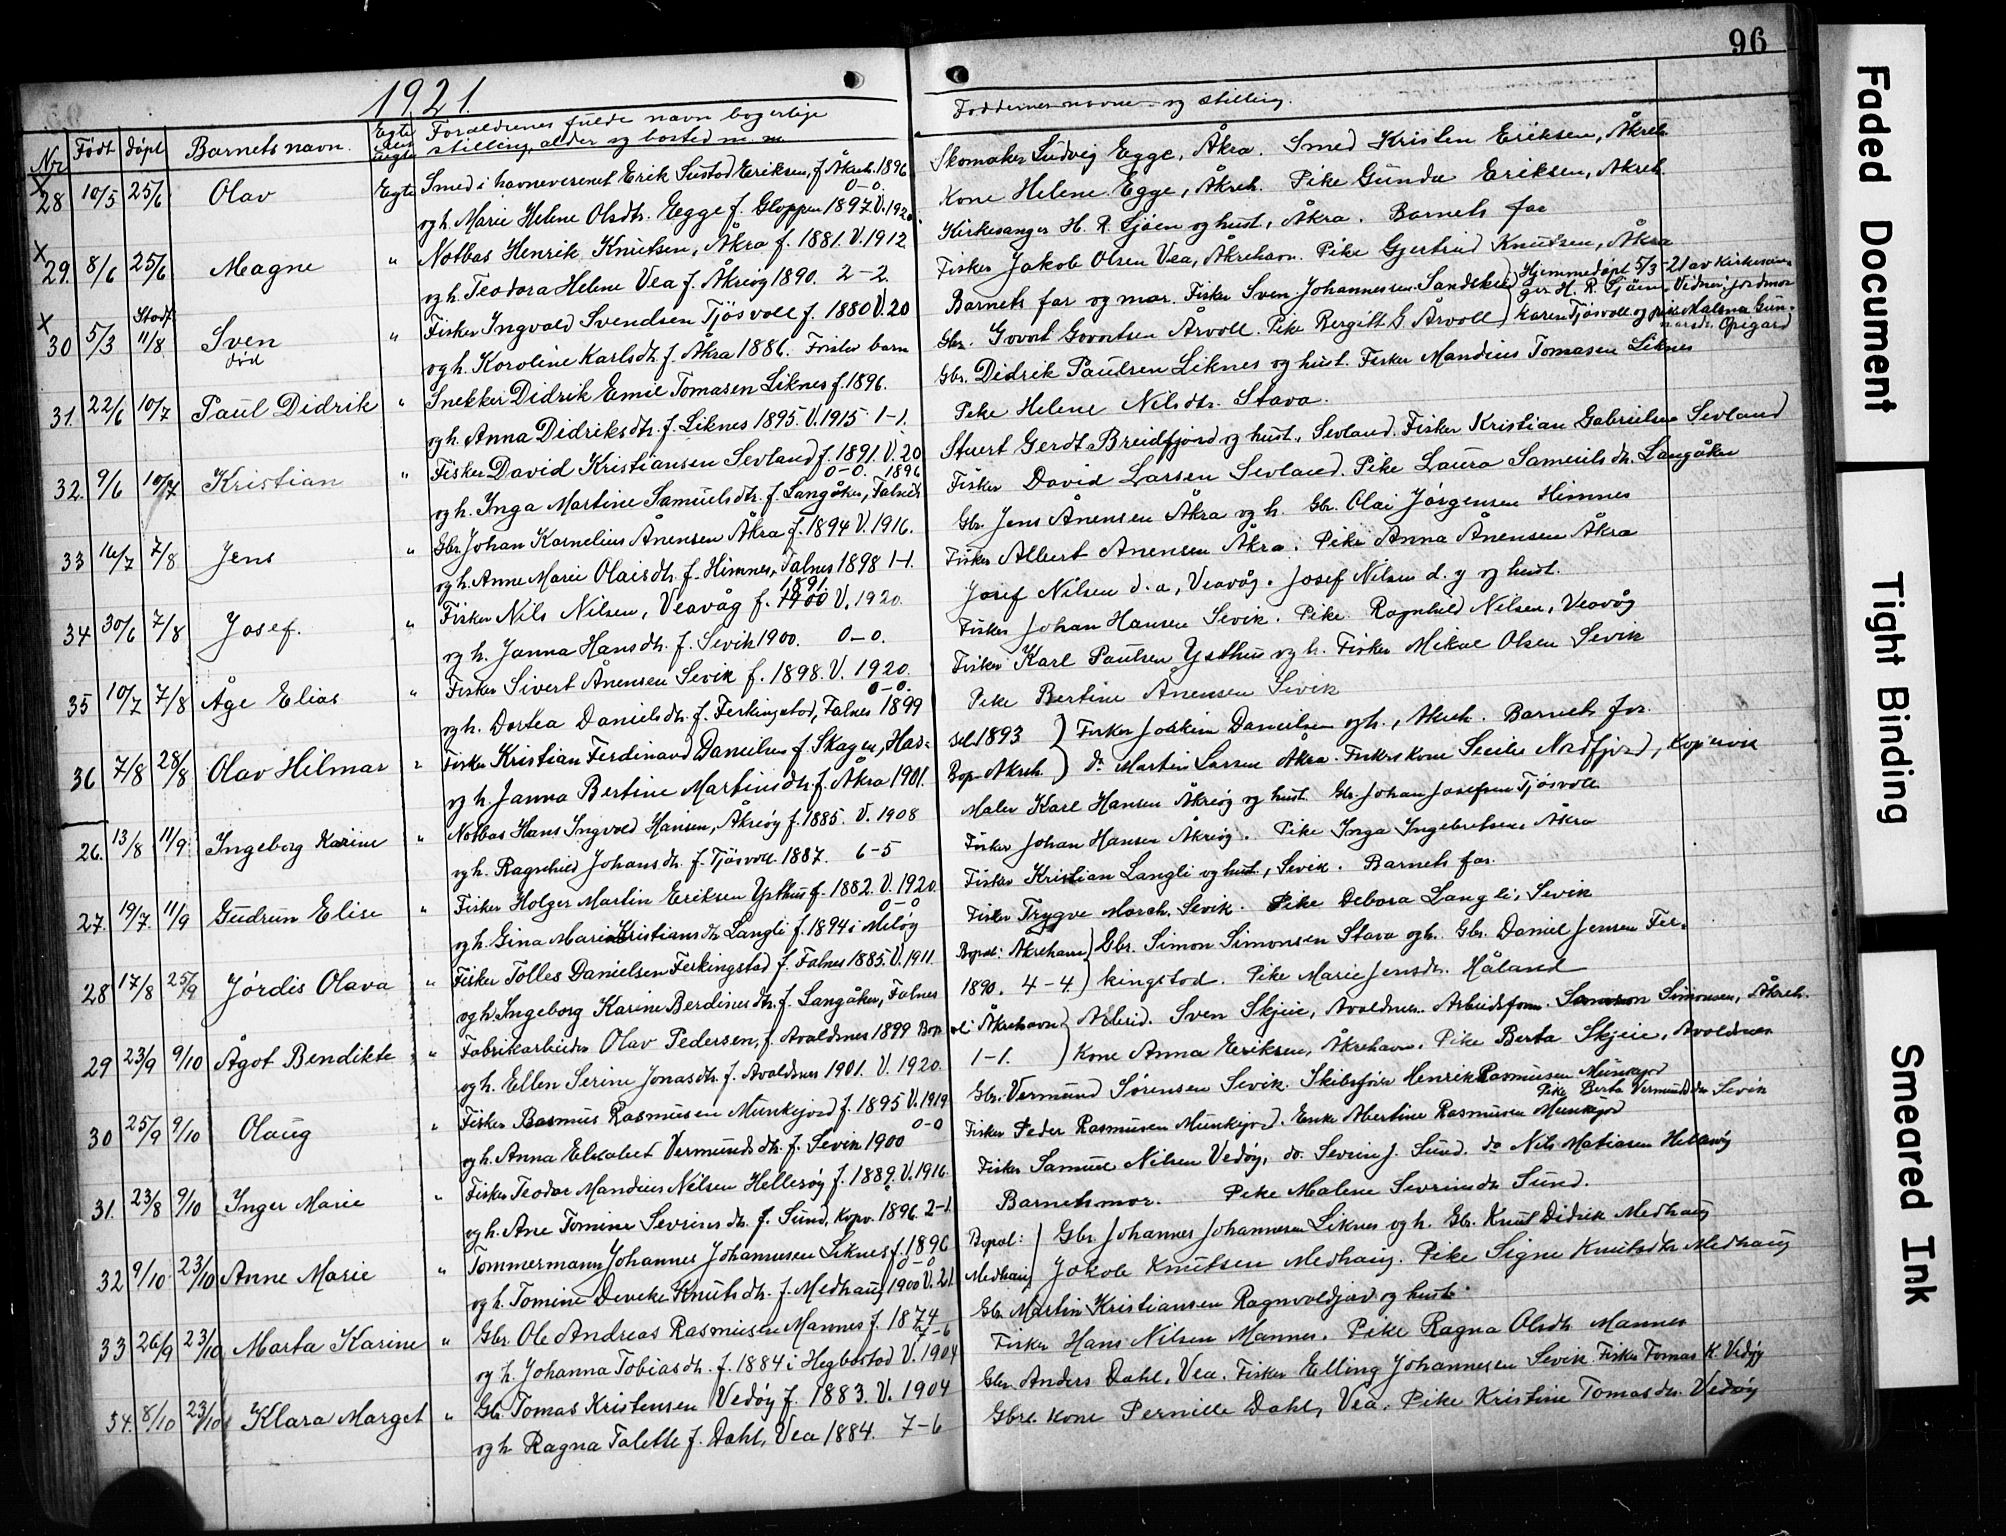 96
1921.
Nr. Født døpt Barnets navn. Egte eller uegte Forældrenes fulde navn bogerlige
stilling, alder og bosted m. m. Faddernes navne og stilling.
28 10/5 25/6 Olav Egte Smed i havnevesenet Erik Sustad Eriksen, f. Åkreh. 1896
0-0.
og h. Marie Helene Olsdtr. Egge f. Gloppen 1897. V. 1920.
Skomaker Ludvig Egge, Åkra. Smed Kristen Eriksen, Åkreh.
Kone Helene Egge, Åkreh. Pike Gunda Eriksen, Åkreh.
29. 8/6 25/6 Magne " Notbas Henrik Knutsen, Åkra f. 1881. V. 1912
og h. Teodora Helene Vea f. Åkreøy 1890. 2-2.
Kirkesanger H. R. Sjøen og hust, Åkra. Barnets far
Fisker Jakob Olsen Vea, Åkrehavn. Pike Gjertrud Knutsen, Åkra
30 5/3 Stadf. 11/8 Sven død " Fisker Ingvald Svendsen Tjøsvoll f. 1880 V. 20
og h. Karoline Karlsdtr. f. Åkra 1886. Første barn
Barnets far og mor. Fisker Sven Johannessen Sandeker
Gbr. Govert Govertsen Årvoll. Pike Bergitt G Årvoll
Hjemmedøpt 5/3-21 av kirkesan-
ger H. R. Sjøen. Vidner: jordmor
Karen Tjøsvoll og pike Malena Gun-
narsdtr. Opigard
31. 22/6 10/7 Paul Didrik " Snekker Didrik Emil Tomasen Liknes f. 1896.
og h. Anna Didriksdtr. f. Liknes 1895. V. 1915 1-1.
Gbr. Didrik Paulsen Liknes og hust. Fisker Mandius Tomasen Liknes
Pike Helene Nilsdtr. Stava.
32. 9/6 10/7 Kristian " Fisker David Kristiansen Sevland f. 1891. V. 20
0-0. 1896
og h. Inga Martine Samuelsdtr. f. Langåker, Falnes
Stuert Gerdt Breidfjord og hust., Sevland. Fisker Kristian Gabrielsen Sevland
Fisker David Larsen Sevland. Pike Laura Samuelsdtr. Langåker
33 16/7 7/8 Jens " Gbr. Johan Kornelius Ånensen Åkra f. 1894 V. 1916.
og h. Anne Marie Olaisdtr. f. Hinnes, Falnes 1898 1-1.
Gbr. Jens Ånensen Åkra og h. Gbr. Olai Jørgensen Hinnes
Fisker Albert Ånensen Åkra. Pike Anna Ånensen Åkra
34 30/6 7/8 Josef. " Fisker Nils Nilsen, Veavåg f. 1891 1900 V. 1920.
og h. Janna Hansdtr. f. Sevik 1900. 0-0.
Josef Nilsen d. a, Veavåg. Josef Nilsen d. y og hust.
Fisker Johan Hansen Sevik. Pike Ragnhild Nilsen, Veavåg
35 10/7 7/8 Åge Elias " Fisker Sivert Ånensen Sevik f. 1898. V. 1920.
0-0.
og h. Dortea Danielsdtr. f. Ferkingstad, Falnes 1899
Fisker Karl Paulsen Ysthus og h. Fisker Mikal Olsen Sevik
Pike Bertine Ånensen Sevik
36 7/8 28/8 Olav Hilmar " Fisker Kristian Ferdinand Danielsen f. Skagen, Had-
og h. Janna Bertine Martinsdtr. f. Åkra 1901.
sel 1893 Fisker Joakim Danielsen og h., Åkreh. Barnets far.
Bop. Åkreh. do. Martin Larsen Åkra. Fiskerkone Secilie Nordfjord, Kopervik
26. 13/8 11/9 Ingeborg Karine " Notbas Hans Ingvald Hansen, Åkreøy f. 1885. V. 1908
og h. Ragnhild Johansdtr. f. Tjøsvoll 1887. 6-5
Maler Karl Hansen Åkreøy og hust. Gbr. Johan Josefsen Tjøsvoll
Fisker Johan Hansen Åkreøy. Pike Inga Ingebretsen, Åkra
27. 19/7. 11/9 Gudrun Elise " Fisker Holger Martin Eriksen Ysthus f. 1882. V. 1920.
0-0
og h. Gina Marie Kristiansdtr. Langli f. 1894 i Meløy
Fisker Kristian Langli og hust, Sevik. Barnets far.
Fisker Trygve March. Sevik. Pike Debora Langli, Sevik
28 17/8 25/9 Jórdis Olava " Fisker Tolles Danielsen Ferkingstad f. Falnes 1885. V. 1911.
og h. Ingeborg Karine Berdinesdtr. f. Langåker, Falnes
Bopæl: Åkrehavn Gbr. Simon Simonsen Stava og h. Gbr. Daniel Jensen Fer-
1890. 4-4 kingstad. Pike Marie Jensdtr. Håland
29 23/9 9/10 Ågot Bendikte " Fabrikarbeider Olav Pedersen, f. Avaldsnes 1899 Bop
og h. Ellen Serine Jonasdtr. f. Avaldsnes 1901. V. 1920.
æl: Åkrehavn Arbeid. Sven Skjeie, Avaldsnes. Arbeidsform. Samson Simonsen, Åkreh.
1-1. Kone Anna Eriksen, Åkrehavn. Pike Berta Skjeie, Avaldsnes
30 25/9 9/10 Olaug " Fisker Rasmus Rasmussen Munkejord f. 1895 V. 1919
0-0
og h. Anna Elisabet Vermundsdtr. f. Sevik 1900
Gbr. Vermund Sørensen Sevik. Skibsfører Henrik Rasmussen Munkejord
Pike Berta Vermundsdtr Sevik
Fisker Peder Rasmussen Munkejord. Enke Abertine Rasmussen Munkejord
31. 23/8 9/10 Inger Marie " Fisker Teodor Mandius Nilsen Hellesøy f. 1889. V. 1916.
og h. Ane Tomine Sevrinsdtr. f. Sund, Kopv. 1896. 2-1.
Fisker Samuel Nilsen Vedøy, do. Sevrin J. Sund. do Nils Matiasen Hellesøy
Barnets mor. Pike Malene Sevrinsdtr Sund.
32 9/10 23/10 Anne Marie " Tømmermann Johannes Johannesen Liknes f. 1896
0-0
og h. Tomine Deveke Knutsdtr. f. Medhaug 1900 V. 21.
Bopæl: Gbr. Johannes Johannesen Liknes og h. Gbr. Knut Didrik Medhaug
Medhaug Jakob Knutsen Medhaug. Pike Signe Knutsdtr Medhaug
33 26/9 23/10 Marta Karine " Gbr. Ole Andreas Rasmusen Mannes f. 1874
7-6
og h. Johanna Tobiasdtr. f. 1884 i Hegbostad V. 1904
Gbr. Martin Kristiansen Ragnvaldjord og hust.
Fisker Hans Nilsen Mannes. Pike Ragna Olsdtr Mannes
34. 8/10 23/10 Klara Marget " Gbr. Tomas Kristensen Vedøy f. 1883. V. 1904
og h. Ragna Talette f. Dahl, Vea 1884. 7-6
Gbr. Anders Dahl, Vea. Fisker Elling Johannesen Sevik. Fisker Tomas K. Vedøy
Gbr. kone Pernille Dahl, Vea. Pike Kristine Tomasdtr. Vedøy
Faded Document
Tight Binding
Smeared Ink